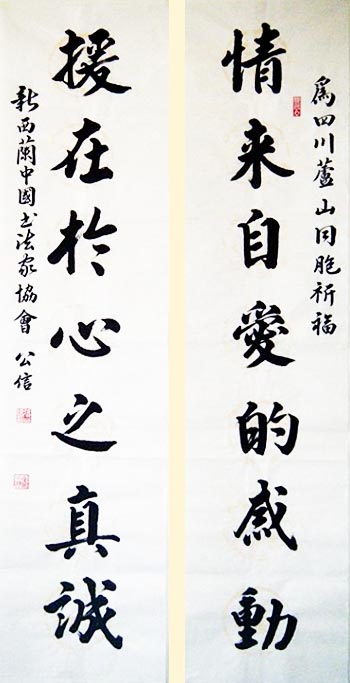 為四川蘆山同胞祈福
情来自愛的感動
援在於心之真誠
新西蘭中國书法家協會 公信